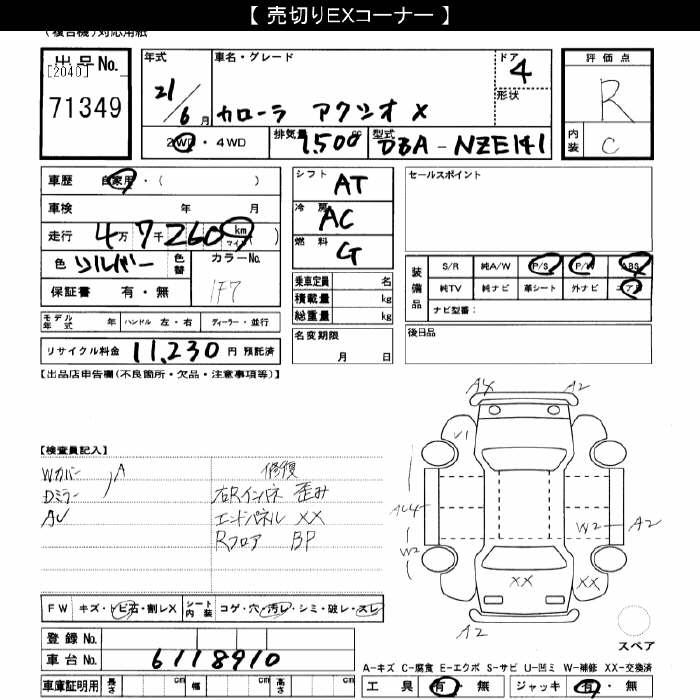 【 売切りEXコーナー 】
(複合機)対応用紙
出品No.
[2040]
71349
年式
21/6月
車名・グレード
カローラ アクシオ X
ドア
4
形状
評価点
R
内装
C
2WD・4WD
排気量
1,500 cc
型式
DBA-NZE141
車歴 自家用・( )
車検 年 月
走行 4万7千260 km マイル ( )
色 シルバー 色替
カラーNo.
1F7
保証書 有・無
シフト AT
冷房 AC
燃料 G
乗車定員 名
積載量 kg
総重量 kg
セールスポイント
装備品
S/R 純A/W P/S P/W ABS
純TV 純ナビ 革シート 外ナビ エアB
ナビ型番:
モデル年式 年 ハンドル 左・右 ディーラー・並行
リサイクル料金 11,230 円 預託済
名変期限
月 日
後日品
【出品店申告欄(不良箇所・欠品・注意事項等)】
【検査員記入】
Wカバー A
Dミラー
修復
右Rインパネ 歪み
エンドパネル XX
Rフロア BP
A4 A2
U1
W2
W2 A2
XX XX
A2
FW キズ・トビ石・割レX シート内装 コゲ・穴・汚レ・シミ・破レ・スレ
スペア
登録 No.
車台 No. 6118910
A-キズ C-腐食 E-エクボ S-サビ U-凹ミ W-補修 XX-交換済
車庫証明用 長さ cm 幅 cm 高さ cm
工具 有・無 ジャッキ 有・無